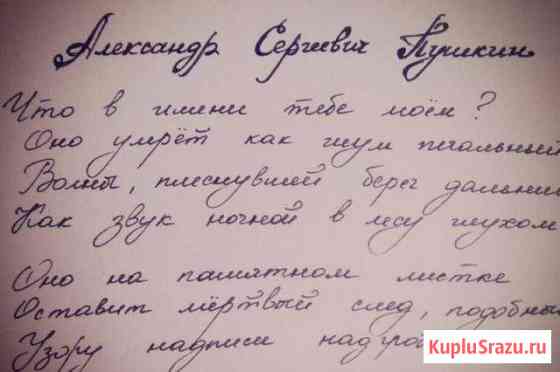 Александр Сергеевич Пушкин
Что в имени тебе моём?
Оно умрёт как шум печальный
Волны, плеснувшей берег дальни
Как звук ночной в лесу глухом
Оно на памятном листке
Оставит мёртвый след, подобны
Узору надписи надгро
KupluSrazu.ru